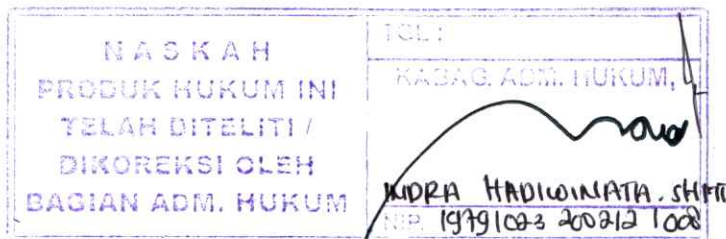 NASKAH
PRODUK HUKUM INI
TELAH DITELITI /
DIKOREKSI OLEH
BAGIAN ADM. HUKUM
TGL :
KABAG. ADM. HUKUM,
INDRA HADIWINATA. SH
NIP. 19791023 200212 1 008